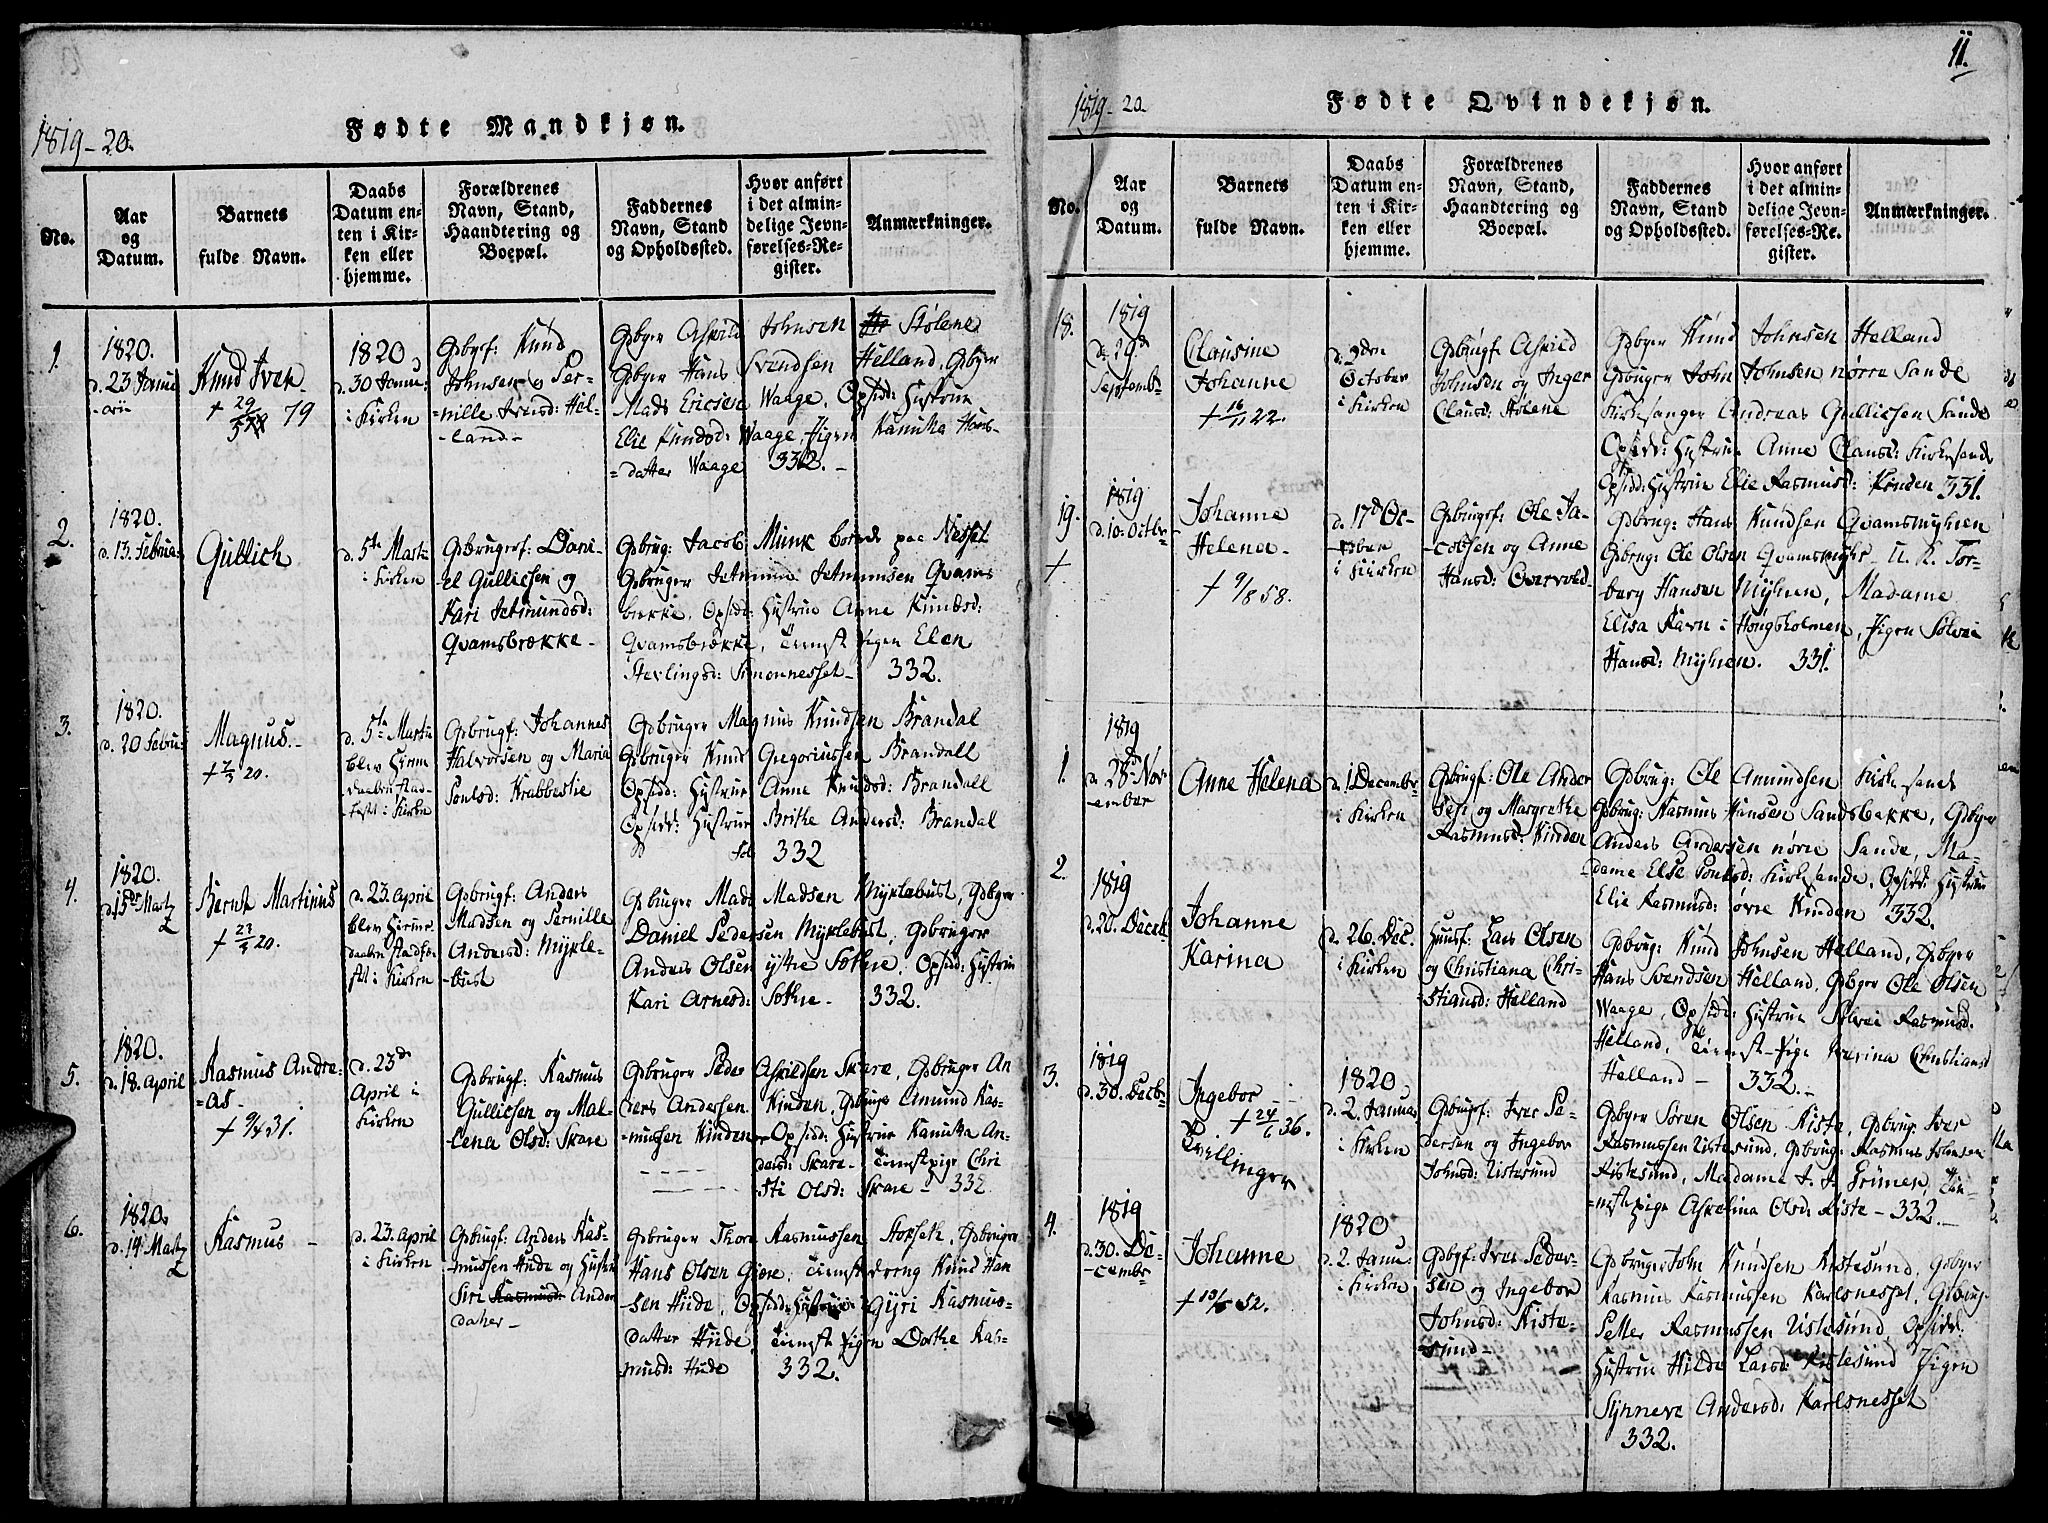 11.
1819-20.
Fødte Mandkjøn.
No.
Aar
og
Datum.
Barnets
fulde Navn.
Daabs
Datum en-
ten i Kir-
ken eller
hjemme.
Forældrenes
Navn, Stand,
Haandtering og
Boepæl.
Faddernes
Navn, Stand
og Opholdssted.
Hvor anført
i det almin-
delige Jevn-
førelses-Re-
gister.
Anmærkninger.
1.
1820.
d. 23 Janu
-arii
Knud Iver
+ 29/3 79
1820
d. 30 Janu:
i Kirken
Gbgf: Knud
Johnsen og Per-
=nille Iversd: Hel-
-land-
Gbger Askild Johnsen Stølene
Gbger Hans Svendsen Helland, Gbger
Mads Ericsen Waage, Opsid: Hustrue
Elie Knudsd: Waage, Pigen Kanutta Hans-
=datter Waage 332.-
2.
1820.
d. 13. Februa:
Gullich
d. 5te Marti
i Kirken
Gbrugrf: Dani-
el Gullichsen og
Kari Jetmundsd:
Qvamsbrække-
Gbrug: Jacob Munk boende paa Nesset
Gbruger Jetmund Jetmundsen Qvams
brække, Opsidd: Hustrue Anne Knudsd:
Qvamsbrække, Tienst Pigen Elen
Sterlingsd: Simonnesset- 332.
3.
1820.
d. 20 Febru:
Magnus.-
+ 7/3 20.
d. 5te Martii
blev Hiem
daaben stad-
fæst i Kirken
Gbrugf: Johannes
Halvorsen og Maria
Povlsd: Krabbestie
Gbruger Magnus Knudsen Brandal
Gbruger Knud Gregoriussen Brandall
Opsidd: Hustrue Anne Knudsd: Brandall
Opsidd: Hustrue Brithe Andersd: Brandal
332
4.
1820.
d. 15de Martz
Bernt Martinus
+ 23/5 20.
d. 23. April
blev Hieme
daaben stadfæ-
stet i Kirken
Gbrugf: Anders
Madsen og Pernille
Andersd: Mykle-
-bust
Gbruger Mads Madsen Myklebust, Gbger
Daniel Pedersen Myklebust, Gbruger
Anders Olsen ystre Søthre, Opsid: Hustrue
Kari Arnesd: Søthre- 332.
5.
1820.
d. 18. April
Rasmus Andre-
=as-
+ 9/4 31.
d. 23de
April i
Kirken
Gbrugf: Rasmus
Gullichsen og Mal-
lena Olsd: Skare
Gbruger Peder Askildsen Skare, Gbruger An
ders Andersen Kinden, Gbruge Amund Ras-
=mussen Kinden Opsidd: Hustrue Kanutta An-
dersd: Skare- Tienstpige Chri
sti Olsd: Skare- 332
6.
1820.
d. 14. Martz
Rasmus-
d. 23 April
i Kirken
Gbrugf: Anders Ras-
mussen Hide og Hustr
Siri Rasmusd: Ander
datter-
Gbruger Thore Rasmussen Storseth, Gbruger
Hans Olsen Gjøre, Tienst dreng Knud Han
sen Hiide, Opsidd: Hustrue Gyri Rasmus-
datter Hiide, Tienst Pigen Dorthe Ras-
-musd: Hide 332.
1819-20.
Fødte Qvindekjøn.
No.
Aar
og
Datum.
Barnets
fulde Navn.
Daabs
Datum en-
ten i Kir-
ken eller
hjemme.
Forældrenes
Navn, Stand,
Haandtering og
Boepæl.
Faddernes
Navn, Stand
og Opholdssted.
Hvor anført
i det almin-
delige Jevn-
førelses-Re-
gister.
Anmærkninger.
18.
1819
d. 29de
Septembr
Clausine
Johanne
+ 16/11 22.
d. 9den
October
i Kirken
Gbrugf: Askild
Johnsen og Inger
Clausd: Stølene
Gbger Knud Johnsen Helland
Gbruger John Johnsen nørre Sande
Kirkesanger Andreas Gullichsen Sande
Opsidd: Hustrue Anne Clausd: Kirkesande
Opsidd: Hustrue Elie Rasmusd: Kinden 331.
19.
+
1819
d. 10. Octbr
Johanne
Helena-
+ 9/8 58.
d. 17de Oc-
-tober
i Kirken
Gbrugrf: Ole Ja-
-cobsen og Anne
Hansd: Overvold-
Gbrug: Hans Knudsen Qvamsmyhren
Gbrug: Ole Olsen Qvamsmyhr- U. K. Tor-
berg Hansen Myhren, Madame
Elisa Ravn i Høngsholmen, Pigen Solvei
Hansd: Myhren. 331.
1.
1819
d. 28de Nov
ember
Anne Helena
d. 1 Decembr
i Kirken
Gbrugf: Ole Ander
sen og Margrethe
Rasmusd: Kinden
Gbrug: Ole Amundsen Kirkesande
Gbrug: Rasmus Hansen Sandsbakke, Gbger
Anders Andersen nørre Sande, Ma-
dame Else Povlsd: Kirkesande, Opsidd: Hustrue
Elie Rasmusd: øvre Kinden 332.
2.
1819
d. 20. Decbr
Johanne
Karina
d. 26. Dec.
i Kirken
Huusf: Lars Olsen
og Christiana Chri-
stiansd: Helland
Gbrug: Knud Johnsen Helland, Gbger
Hans Svendsen Helland, Gbger Ole Olsen
Waage, Opsidd: Hustrue Solvei Rasmusd.
Helland, Tienst-Pige Karina Christiansd
Helland- 332.-
3.
1819
d. 30. Decbr
Ingebor--
+ 24/6 36.
Tvillinger
1820.
d. 2. Januar
i Kirken
Gbrugf: Iver Pe-
dersen og Ingebor
Johnsd: Ristesund
Gbger Søren Olsen Riste, Gbrug: Iver
Rasmussen Ristesund, Gbrug: Rasmus Johnsen
Ristesund, Madame A. A. Grimen, Tie-
=nstpige Askelina Olsd: Riste- 332.-
4.
1819
d. 30. De-
-cembr
Johanne
+ 10/5 52.
1820
d. 2. Janu:
i Kirken
Gbgf: Iver Peder-
sen og Ingebor
Johnsd: Riste-
sund-
Gbruger John Knudsen Ristesund, Gbger
Rasmus Rasmussen Karlsnesset, Gbrug-
Petter Rasmussen Ristesund, Opsidd:
Hustrue Hilde Larsd: Ristesund Pigen
Synneve Andersd: Karlsnesset
332.